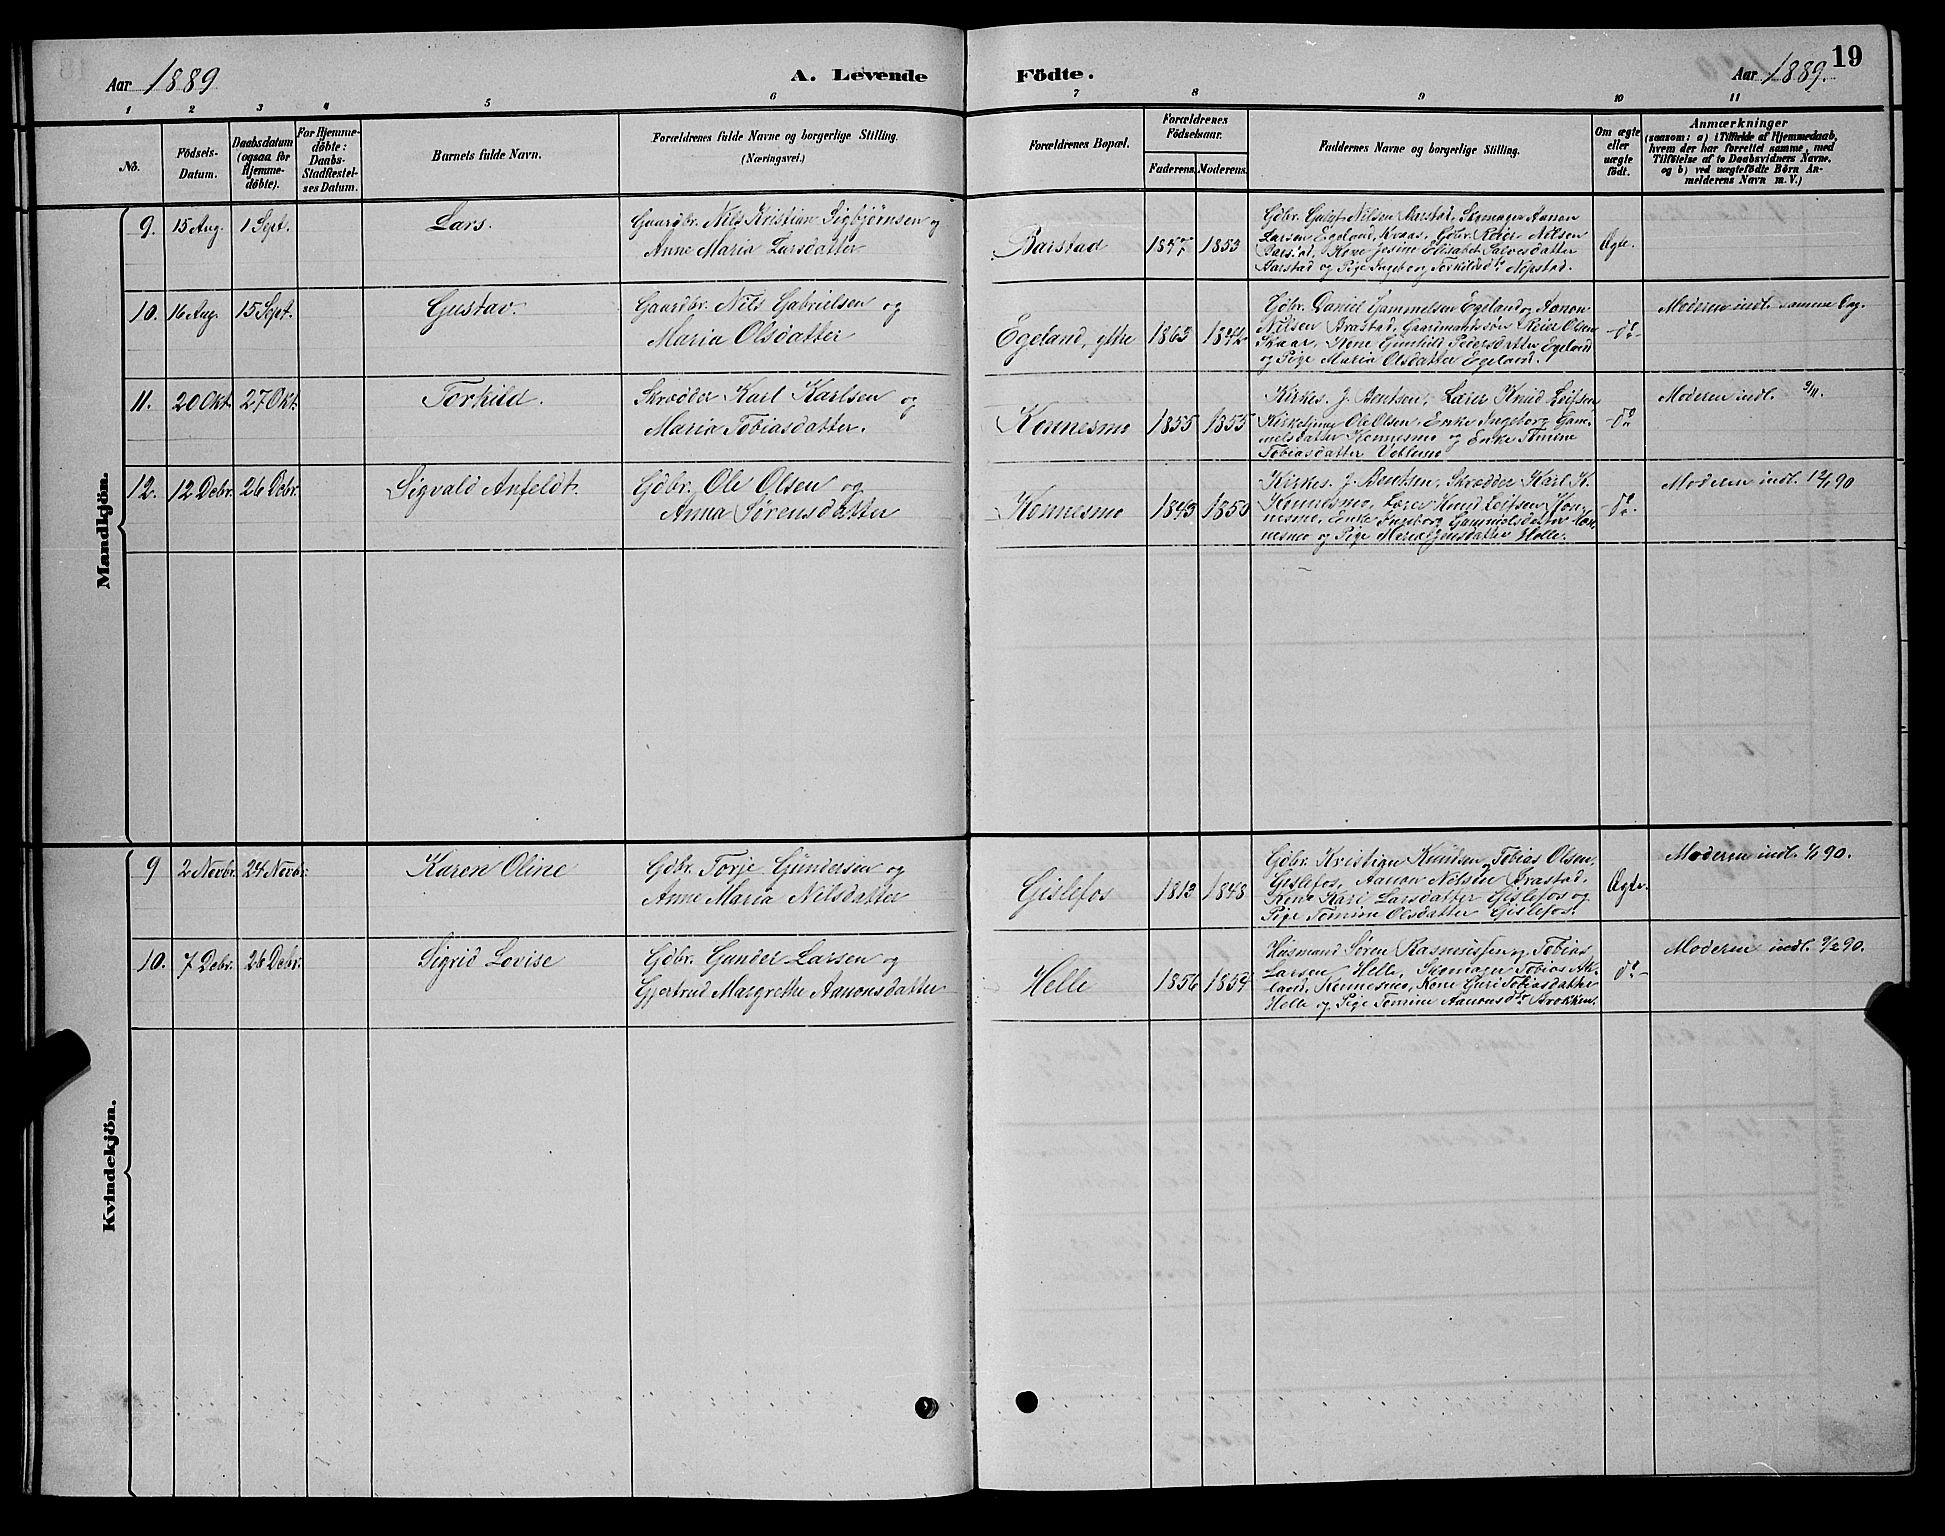 Aar 1889
A. Levende
Födte.
Aar 1889.
19
1 2 3 4 5 6 7 8 9 10 11
No.
Födsels-
Datum.
Daabsdatum
(ogsaa for
Hjemme-
döbte).
For Hjemme-
döbte:
Daabs-
Stadfæstel-
ses Datum.
Barnets fulde Navn.
Forældrenes fulde Navne og borgerlige Stilling.
(Næringsvei.)
Forældrenes Bopæl.
Forældrenes
Födselsaar.
Faderens. Moderens.
Faddernes Navne og borgerlige Stilling.
Om ægte
eller
uægte
födt.
Anmærkninger
(saasom: a) i Tilfælde af Hjemmedaab,
hvem der har forrettet samme, med
Tilföielse af to Daabsvidners Navne,
og b) ved uægtefödte Börn An-
melderens Navn m. V.)
Mandkjön.
9. 15 Aug. 1 Sept. Lars.
Gaardbr. Nils Kristian Sigbjørnsen og
Anne Maria Larsdatter
Barstad 1847 1853
Gdbr. Nilsen Aarstad, Skomager Aanon
Larsen Egeland, Kvaas, Gdbr. Reier Nilsen
Barstad, Kone Jesine Elisabet Salvesdatter
Aarstad og Pige Ingeborg Torkildsdtr. Nepstad.
Ægte.
10. 16 Aug. 15 Sept. Gustav.
Gaardbr. Nils Gabrielsen og
Maria Olsdatter
Egeland, ytre 1863
Gdbr. Daniel Gammelsen Egeland og Aanon
Nilsen Brastad, Gaardmandssøn Reier Olsen
Skaar, Kone Gunhild Pedersdatter Egeland
og Pige Maria Olsdatter Egeland.
do
Moderen indl. samme Dag.
11. 20 Okt. 27 Okt. Torkild.
Skrædder Karl Karlsen og
Maria Tobiasdatter.
Konnesmo 1855 1855
Kirkes. J. Bentsen, Lærer Knud Leifsen,
Ole Olsen, Enke Ingeborg Gam-
melsdatter Konnesmo og Enke Tomine
Tobiasdatter
do
Moderen indl. 3/11.
12. 12 Debr. 26 Debr. Sigvald Anfeldt.
Gdbr. Ole Olsen og
Anna Sørensdatter
Konnesmo 1843 1850
Kirkes. J. Bentsen, Skrædder Karl K.
Konnesmo, Lærer Knud Leifsen Kon-
nesmo, Enke Ingeborg Gammelsdatter Kon-
nesmo og Pige Maria Jensdatter Helle.
do
Moderen indl. 90
Kvindekjön.
9 2 Novbr. 24 Novbr. Karen Oline
Gdbr. Torje Gundersen og
Anne Maria Nilsdatter
Gislefos 1813 1848
Gdbr. Kristian Knudsen og Tobias Olsen,
Gislefos, Aanon Nilsen Brastad,
Kone Kari Larsdatter Gislefos og
Pige Tomine Olsdatter Gislefos.
Ægte.
Moderen indl. 90.
10. 7 Debr. 26 Debr. Sigrid Lovise
Gdbr. Gunder Larsen og
Gjertrud Margrethe Aanonsdatter
Helle 1856 1854
Husmand Søren Rasmussen og Tobias
Larsen Helle, Skomager Tobias
Konnesmo, Kone Guri Tobiasdatter
Helle og Pige Tomine Aanonsdtr. Brokken.
do
Moderen indl. 9/2 90.